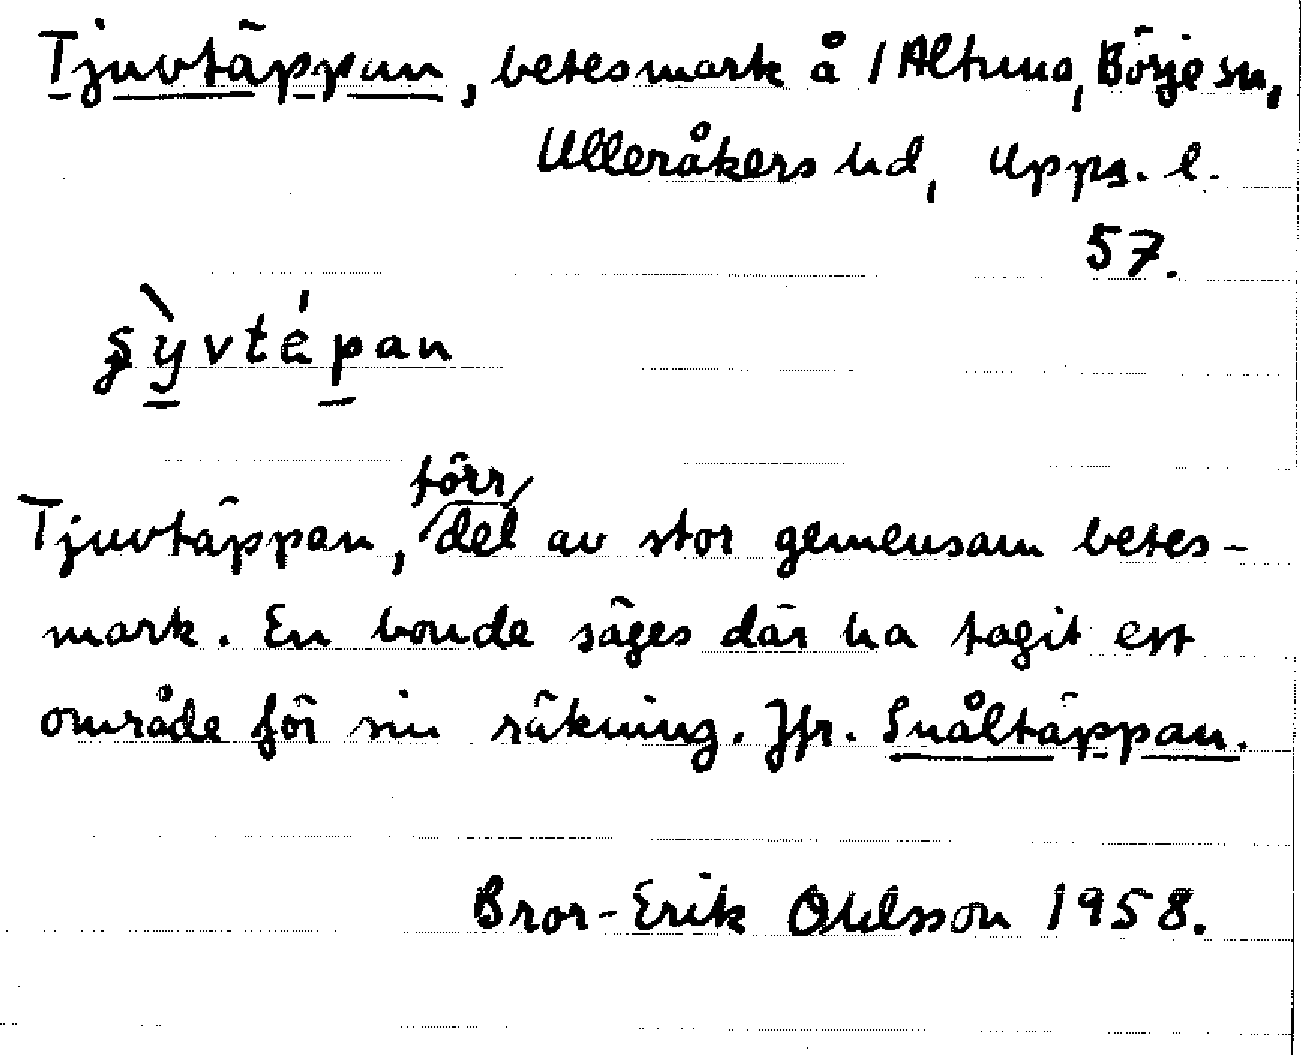 Tjuvtäppan, betesmark å 1 Altuna, Börje sn,
Ulleråkers hd, Upps. l.
57.
Tjuvtäppan, förr del av stor gemensam betes-
mark. En bonde säges där ha tagit ett
område för sin räkning. Jfr. Snåltäppan.
Bror-Erik Ohlsson 1958.